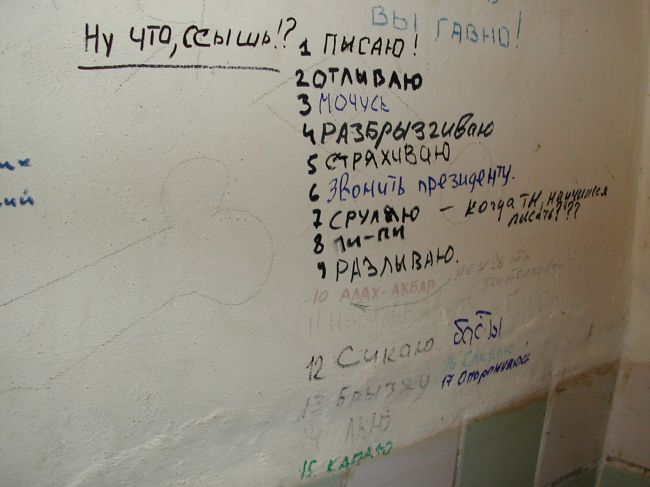 ВЫ ГАВНО!
Ну что, ссышь!?
1 ПИСАЮ!
2 ОТЛИВАЮ
3 МОЧУСЬ
4 РАЗБРЫЗГИВАЮ
5 СТРАХИВАЮ
6 Звонить президенту.
7 СРУЛЯЮ — КОГДА ТЫ НАУЧИШСЯ
ПИСАТЬ???
8 ПИ-ПИ
9 РАЗЛИВАЮ.
10 АЛАХ-АКБАР
11
12 Сикаю
13 Брызжу
ЛЬЮ
15 КАПАЮ
16 Сливаю
17